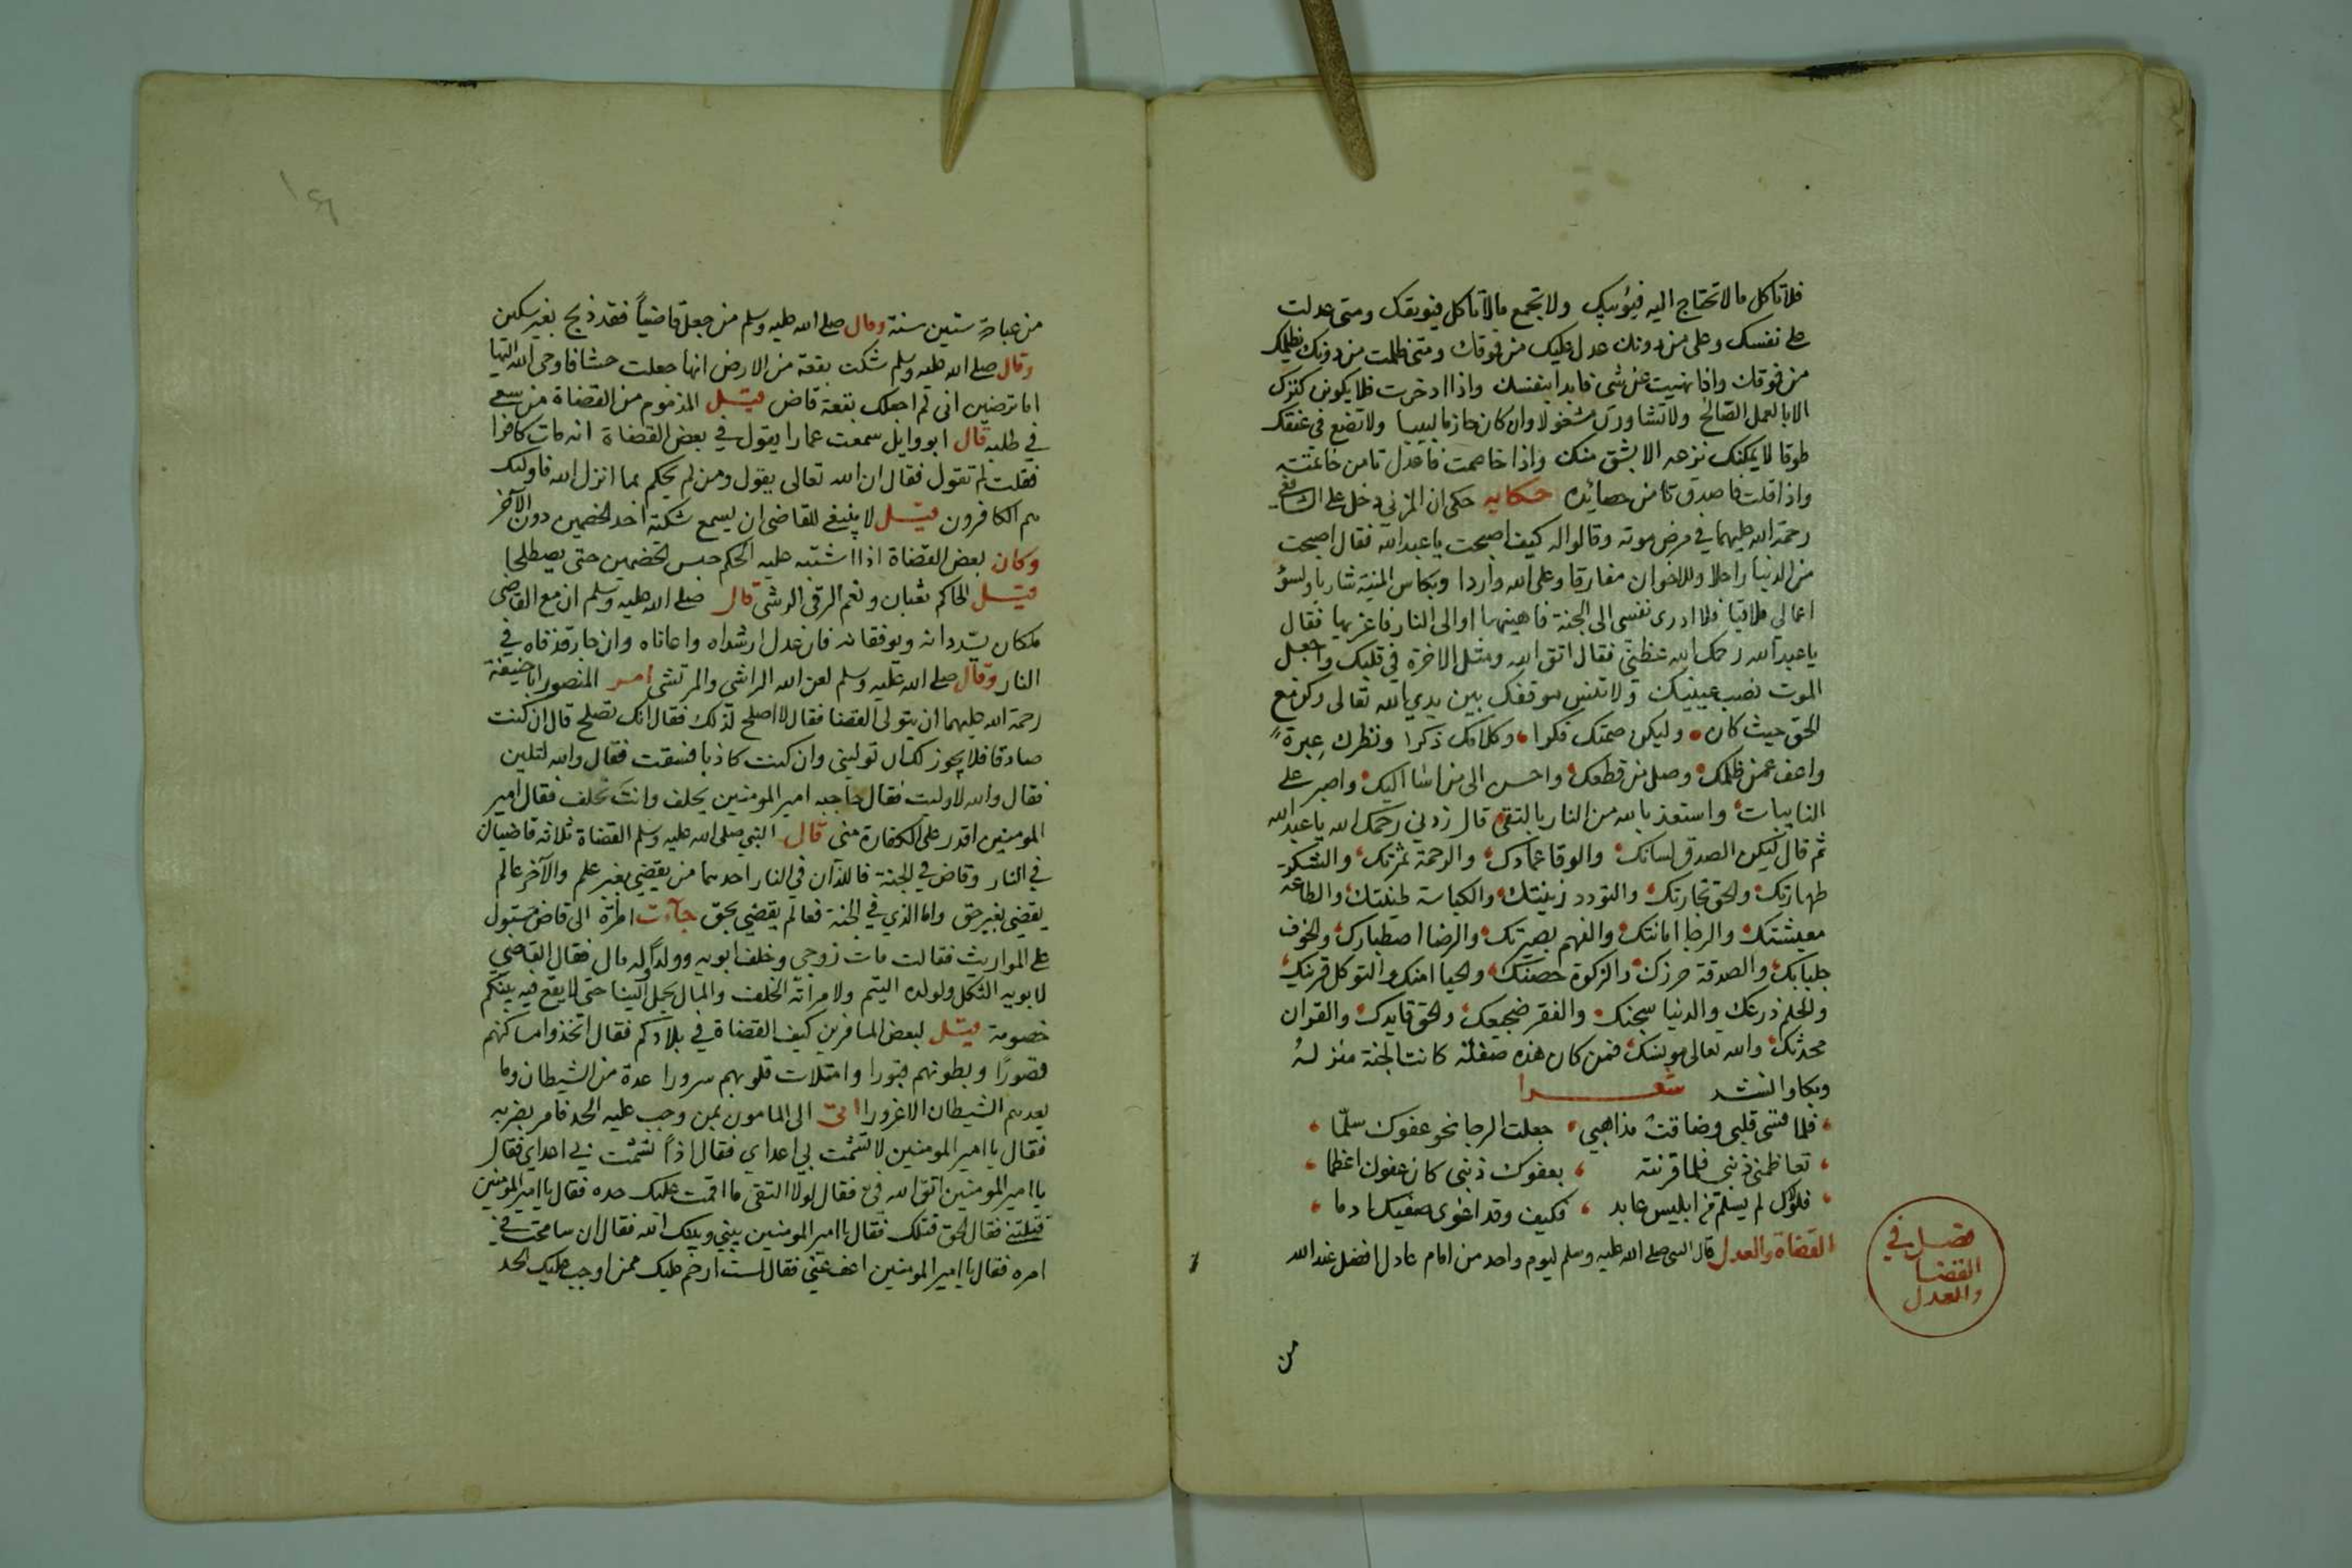 فلا تاكل ما لا تحتاج اليه فيؤبيك ولا تجمع ما لا تاكل فيوبقك ومتى عدلت
على نفسك وعلى من دونك عدل عليك من فوقك ومتى ظلمت من دونك يظلمك
من فوقك واذا نهيت عن شى فابدا بنفسك واذا ادخرت فلا يكون كنزك
الا بالعمل الصالح ولا تشاورن مشغولا وان كان حازما لبيبا ولا تضع فى عنقك
طوقا لا يمكنك نزعه الا بشق منك واذا خاصمت فاعدل تامن خاعتته
واذا قلت فاصدق تامن حصائده حكايه حكى ان المزني دخل على الشافعى
رحمة الله عليهما في مرض موته وقالوا له كيف اصبحت يا عبد الله فقال اصبحت
من الدنيا راحلا وللاخوان مفارقا وعلى الله واردا وبكاس المنية شاربا ولسؤ
اعمالى ملاقيا فلا ادرى نفسى الى الجنة فاهنيها او الى النار فاعزيها فقال
يا عبد الله رحمك الله عظنى فقال اتق الله ومثل الاخرة في قلبك واجعل
الموت نصب عينيك ولا تنس موقفك بين يدي الله تعالى وكن مع
الحق حيث كان وليكن صمتك فكرا وكلامك ذكرا ونظرك عبرة
واعف عمن ظلمك وصل من قطعك واحسن الى من اسا اليك واصبر على
النايبات واستعذ بالله من النار بالتقى قال زدني رحمك الله يا عبد الله
ثم قال ليكن الصدق لسانك والوفا عمادك والرحمة ثمرتك والشكر
طهارتك والحق تجارتك والتودد زينتك والكياسة طينتك والطاعه
معيشتك والرجا امانتك والفهم بصيرتك والرضا اصطبارك والخوف
جلبابك والصدقة حرزك والزكوة حصنك والحيا امنك والتوكل قرينك
والحلم ذرعك والدنيا سجنك والفقر ضجيعك والحق قايدك والقران
محدثك والله تعالى مونسك فمن كان هذه صفته كانت الجنة منزله
وبكا وانشد شعرا
فلما قسى قلبى وضاقت مذاهبي جعلت الرجا نحو عفوك سلما
تعاظمنى ذنبى فلما قرنته بعفوك ذنبى كان عفوك اعظما
فلولاك لم يسلم من ابليس عابد فكيف وقد اغوى صفيك ادما
القضاة والعدل قال النبى صلى الله عليه وسلم ليوم واحد من امام عادل افضل عند الله
فصل في
القضا
والعدل
من
من عبادة ستين سنة وقال صلى الله عليه وسلم من جعل قاضياً فقد ذبح بغير سكين
وقال صلى الله عليه وسلم شكت بقعة من الارض انها جعلت حشا فاوحى الله اليها
اما ترضين انى لم اجعلك بقعة قاض قيل المذموم من القضاة من سعى
في طلبه قال ابو وايل سمعت عمارا يقول في بعض القضاة انه مات كافرا
فقلت لم تقول فقال ان الله تعالى يقول ومن لم يحكم بما انزل الله فاوليك
هم الكافرون قيل لا ينبغى للقاضى ان يسمع شكية احد الخصمين دون الآخر
وكان بعض القضاة اذا اشتبه عليه الحكم حبس الخصمين حتى يصطلحا
قيل الحاكم ثعبان ونعم الرقى الرشى قال صلى الله عليه وسلم ان مع القاضى
ملكان يسددانه ويوفقانه فان عدل ارشداه واعاناه وان جار قذفاه في
النار وقال صلى الله عليه وسلم لعن الله الراشي والمرتشى امر المنصور ابا حنيفة
رحمة الله عليهما ان يتولى القضا فقال لا اصلح لذلك فقال انك تصلح قال ان كنت
صادقا فلا يجوز لك ان توليني وان كنت كاذبا فسقت فقال والله لتلين
فقال والله لا وليت فقال حاجبه امير المومنين يحلف وانت تحلف فقال امير
المومنين اقدر على الكفارة منى قال النبي صلى الله عليه وسلم القضاة ثلاثه قاضيان
في النار وقاض في الجنة فاللذان في النار احدهما من يقضي بغير علم والآخر عالم
يقضى بغير حق واما الذي في الجنة فعالم يقضي بحق جآءت امرة الى قاض مسبول
على المواريث فقالت مات زوجي وخلف ابويه وولداً وله مال فقال القاضي
لابويه الثكل ولولده اليتم ولامراته الخلف والمال يحمل الينا حتى لا يقع فيه بينكم
خصومة قيل لبعض المسافرين كيف القضاة في بلادكم فقال اتخذوا مساكنهم
قصورًا وبطونهم قبورا وامتلات قلوبهم سرورا عدة من الشيطان وما
يعدهم الشيطان الا غرورا اتى الى المامون بمن وجب عليه الحد فامر بضربه
فقال يا امير المومنين لا تشمت بي اعداي فقال اذاً تشمت بي اعداي فقال
يا امير المومنين اتق الله فى فقال لولا التقى ما اقمت عليك حده فقال يا امير المومنين
قتلتنى فقال الحق قتلك فقال يا امير المومنين بيني وبينك الله فقال ان سامحت في
امره فقال يا امير المومنين اعف عني فقال لست ارحم عليك ممن اوجب عليك الحد